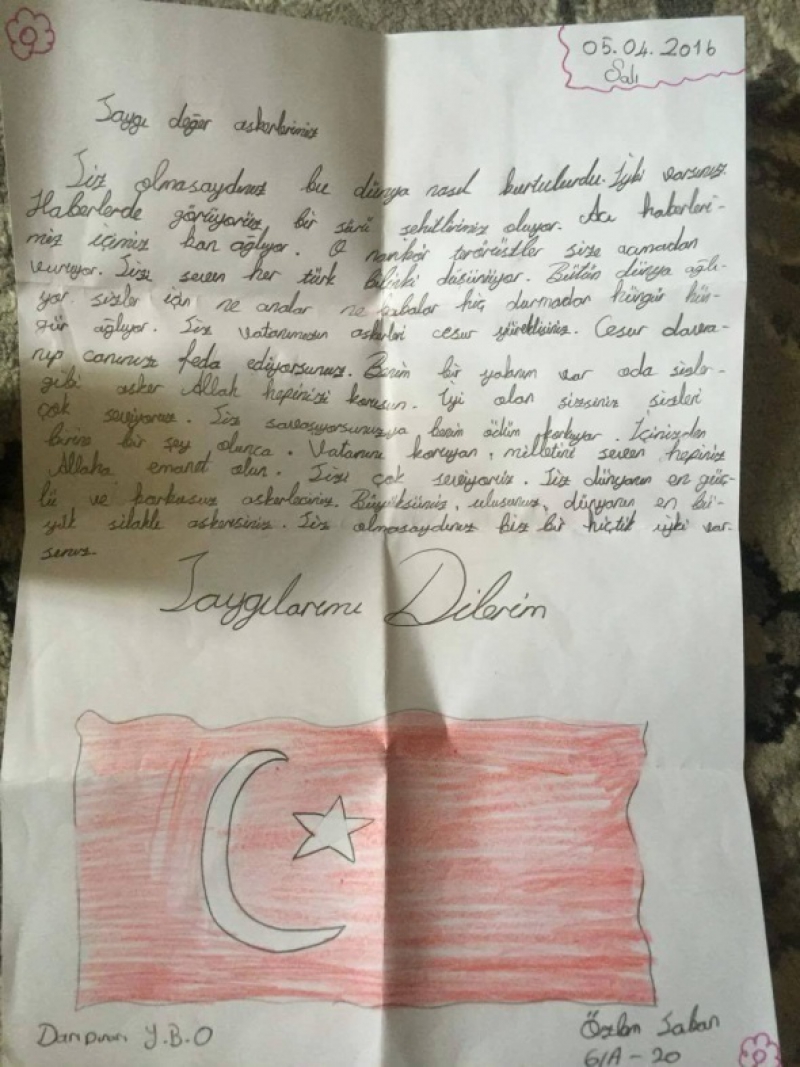 05.04.2016
Salı
Saygı değer askerlerimiz
Siz olmasaydınız bu dünya nasıl kurtulurdu. İyki varsınız.
Haberlerde görüyoruz bir sürü şehitlirimiz oluyor. Acı haberleri-
miz içimiz kan ağlıyor. O nankör terörüstler size acımadan
vuruyor. Sizi seven her türk bilirki düşünüyor. Bütün dünya ağlı-
yor sizler için ne analar ne babalar hiç durmadan hüngür hün-
gür ağlıyor. Siz vatanımızın askerleri cesur yüreklisiniz. Cesur davra-
nıp canınızı feda ediyorsunuz. Benim bir yakınım var oda sizler-
gibi asker Allah hepinizi korusun. İyi olan sizsiniz sizleri
çok seviyoruz. Siz savaşıyorsunuzya benim ödüm kokuyor. İçinizden
birine bir şey olunca. Vatanını koruyan, milletini seven hepiniz
Allaha emanet olun. Sizi çok seviyoruz. Siz dünyanın en güç-
lü ve korkusuz askerlerisiniz. Büyüksünüz, ulusunuz, dünyanın en bü-
yük silahlı askersiniz. Siz olmasaydınız biz bir hiçtik iyki var-
sınız.
Saygılarımı Dilerim
Y.B.O
Özlem Saban
6/A - 20